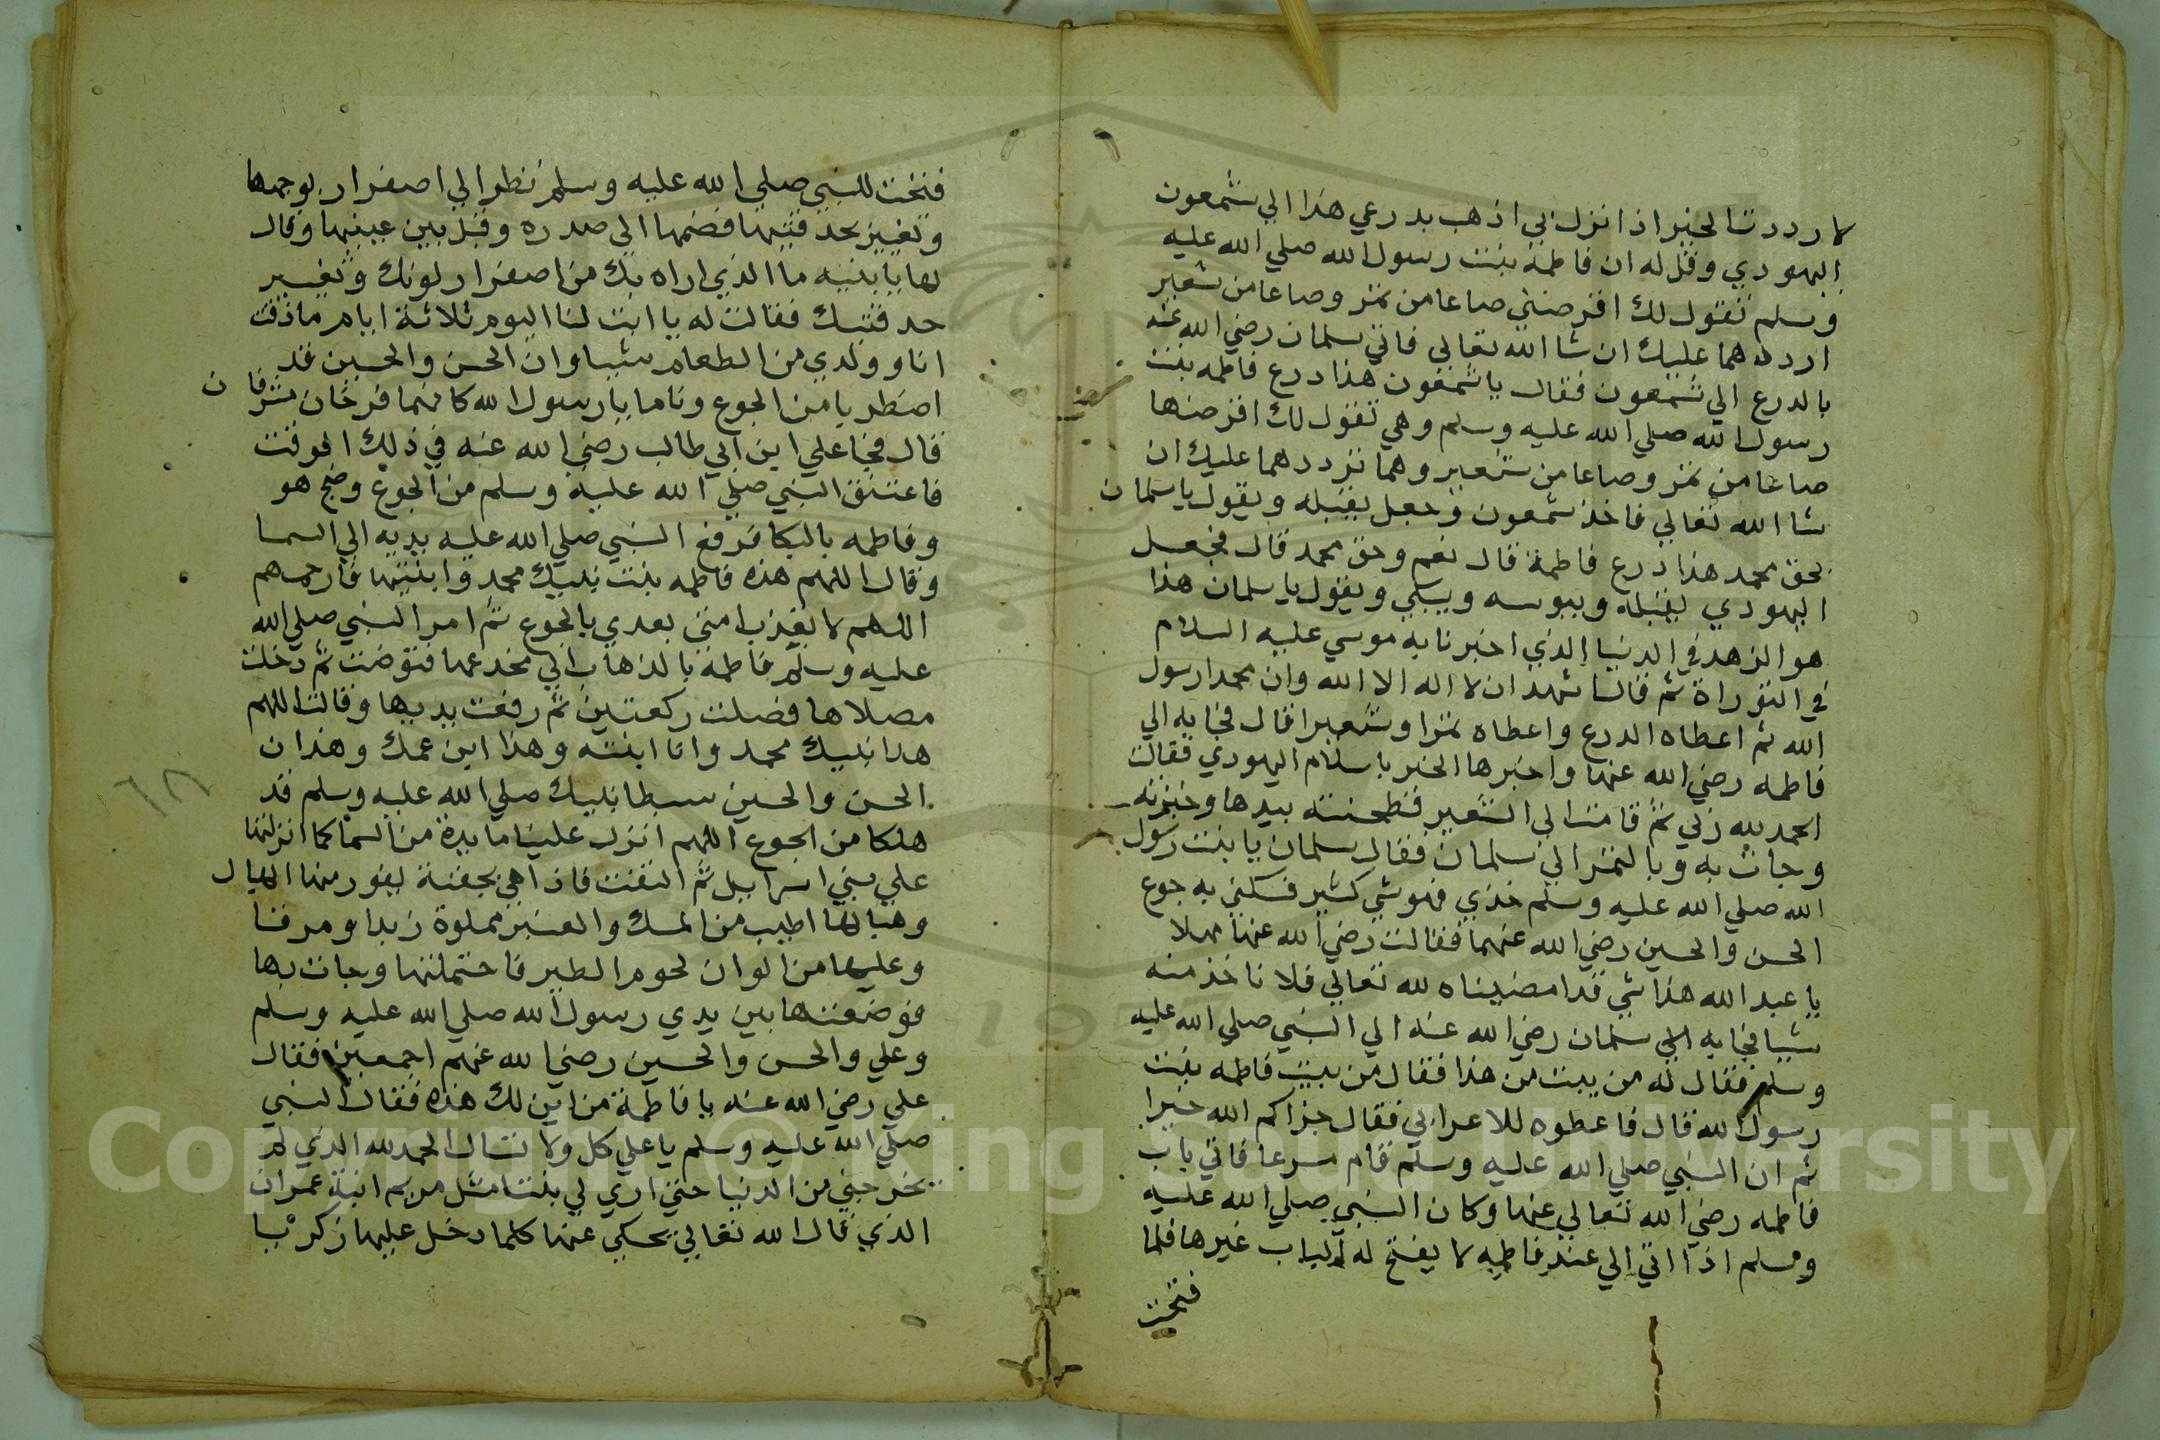 لا رددت الخير اذا نزل بي اذهب بدرعي هذا الي شمعون
اليهودي وقل له ان فاطمة بنت رسول الله صلي الله عليه
وسلم تقول لك اقرضني صاعا من تمر وصاعا من شعير
ارددهما عليك ان شا الله تعالي فاتي سلمان رضي الله عنه
بالدرع الي شمعون فقال يا شمعون هذا درع فاطمه بنت
رسول الله صلي الله عليه وسلم وهي تقول لك اقرضها
صاعا من تمر وصاعا من شعير وهما تزددهما عليك ان
شا الله تعالي فاخذ شمعون وجعل يقبله ويقول يا سلمان
بحق محمد هذا درع فاطمة قال نعم وحق محمد قال فجعل
اليهودي يقبله ويبوسه ويبكي ويقول يا سلمان هذا
هو الزهد في الدنيا الذي اخبرنا به موسي عليه السلام
في التوراة ثم قال اشهد ان لا اله الا الله وان محمدا رسول
الله ثم اعطاه الدرع واعطاه تمرا وشعيرا قال فجا به الي
فاطمه رضي الله عنها واخبرها الخبر باسلام اليهودي فقالت
الحمد لله ربي ثم قامت الي الشعير فطحنته بيدها وخبزته
وجات به وبالتمر الي سلمان فقال سلمان يا بنت رسول
الله صلي الله عليه وسلم خذي فهو شي كثير فسكني به جوع
الحسن والحسين رضي الله عنهما فقالت رضي الله عنها مهلا
يا عبد الله هذا شي قد امضيناه لله تعالي فلا ناخذ منه
شيا فجا به الي سلمان رضي الله عنه الي النبي صلي الله عليه
وسلم فقال له من بيت من هذا فقال من بيت فاطمه بنت
رسول الله قال فاعطوه للاعرابي فقال جزاكم الله خيرا
ثم ان النبي صلي الله عليه وسلم قام مسرعا فاتي باب
فاطمه رضي الله تعالي عنها وكان النبي صلي الله عليه
وسلم اذا اتي الي عند فاطمه لا يفتح له الباب غيرها فلما
فتحت
فتحت للنبي صلي الله عليه وسلم نظر الي اصفرار بوجهها
وتغيير بحدقتيها فضمها الي صدره وقبل بين عينيها وقال
لها يا بنيه ما الذي اراه بك من اصفرار لونك وتغيير
حدقتيك فقالت له يا ابت لنا اليوم ثلاثة ايام ما ذقت
انا وولدي من الطعام شيا وان الحسن والحسين قد
اضطربا من الجوع وناما يا رسول الله كانهما فرخان مشرفان
قال فجا علي ابن ابي طالب رضي الله عنه في ذلك الوقت
فاعتنق النبي صلي الله عليه وسلم من الجوع وضج هو
وفاطمه بالبكا فرفع النبي صلي الله عليه يديه الي السما
وقال اللهم هذه فاطمه بنت نبيك محمد وابنتها فارحمهم
اللهم لا تعذب امتي بعدي بالجوع ثم امر النبي صلي الله
عليه وسلم فاطمة بالذهاب الي مخدعها فتوضت ثم دخلت
مصلاها فصلت ركعتين ثم رفعت يديها وقالت اللهم
هذا نبيك محمد وانا ابنته وهذا ابن عمك وهذان
الحسن والحسين سبطا نبيك صلي الله عليه وسلم قد
هلكا من الجوع اللهم انزل علينا مايدة من السما كما انزلتها
علي بني اسراييل ثم التفتت فاذا هي بجفنة يفور منها الهبال
وهبالها اطيب من المسك والعنبر مملوة زبدا ومرقا
وعليها من الوان لحوم الطير فاحتملتها وجات بها
فوضعتها بين يدي رسول الله صلي الله عليه وسلم
وعلي والحسن والحسين رضي الله عنهم اجمعين فقال
علي رضي الله عنه يا فاطمة من اين لك هذه فقال النبي
صلي الله عليه وسلم يا علي كل ولا تسال الحمد لله الذي لم
يخرجني من الدنيا حتي اري لي بنتا مثل مريم ابنة عمران
الذي قال الله تعالي يحكي عنها كلما دخل عليها زكريا
٦٨
Copyright © King Saud University
1957